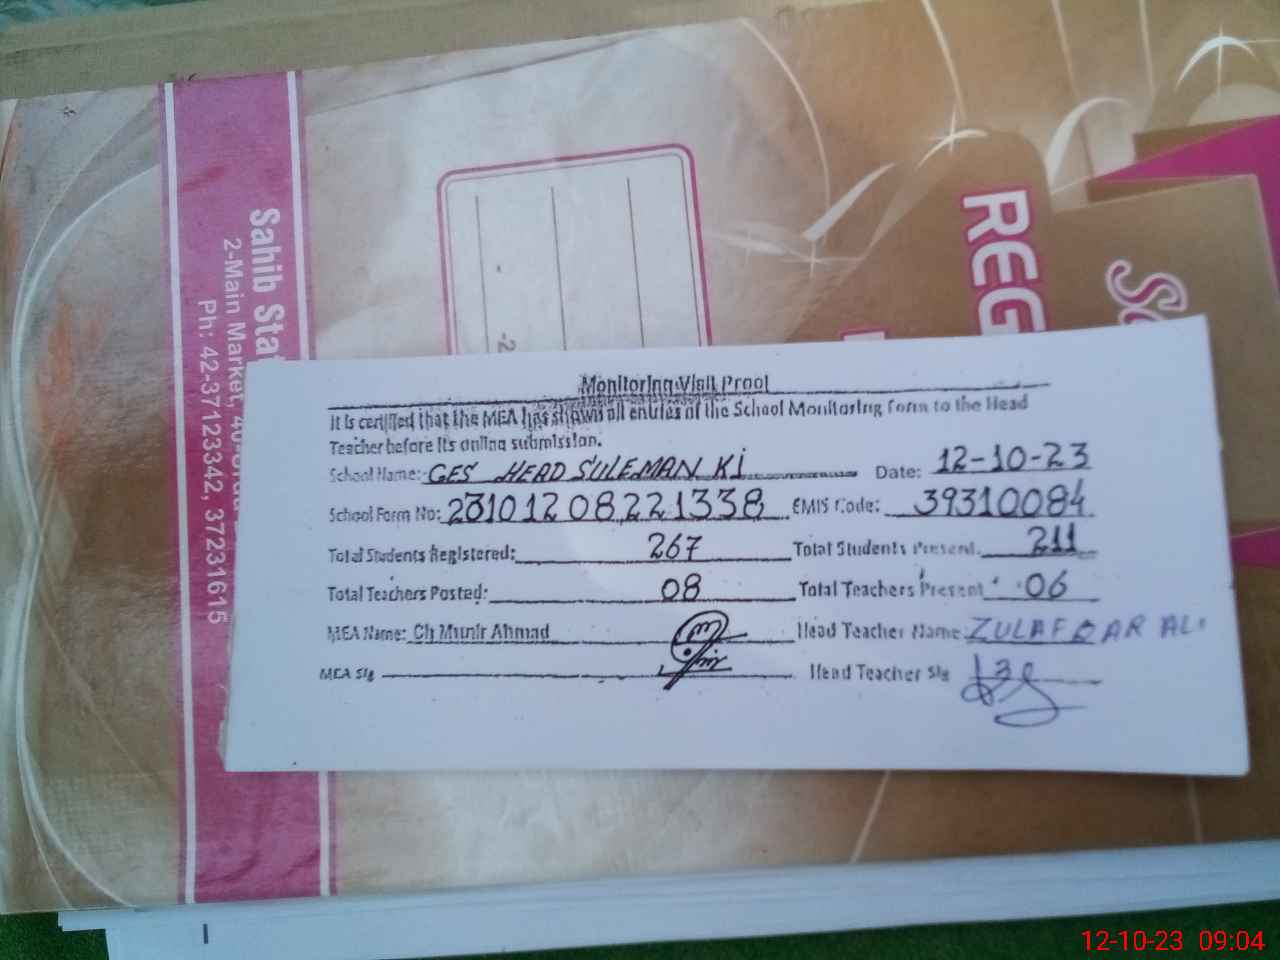 Sahib Stat
2-Main Market, 40-
Ph: 42-37123342, 37231615
REG
Monitoring Visit Proof
It is certified that the MEA has shown all entries of the School Monitoring Form to the Head
Teacher before its online submission.
School Name: GES HEAD SULEMAN KI Date: 12-10-23
School Form No: 23101208221338 EMIS Code: 39310084
Total Students Registered: 267 Total Students Present. 211
Total Teachers Posted: 08 Total Teachers Present 06
MEA Name: Ch Munir Ahmad Head Teacher Name: ZULAFQAR ALI
MEA Sig Head Teacher Sig
12-10-23 09:04